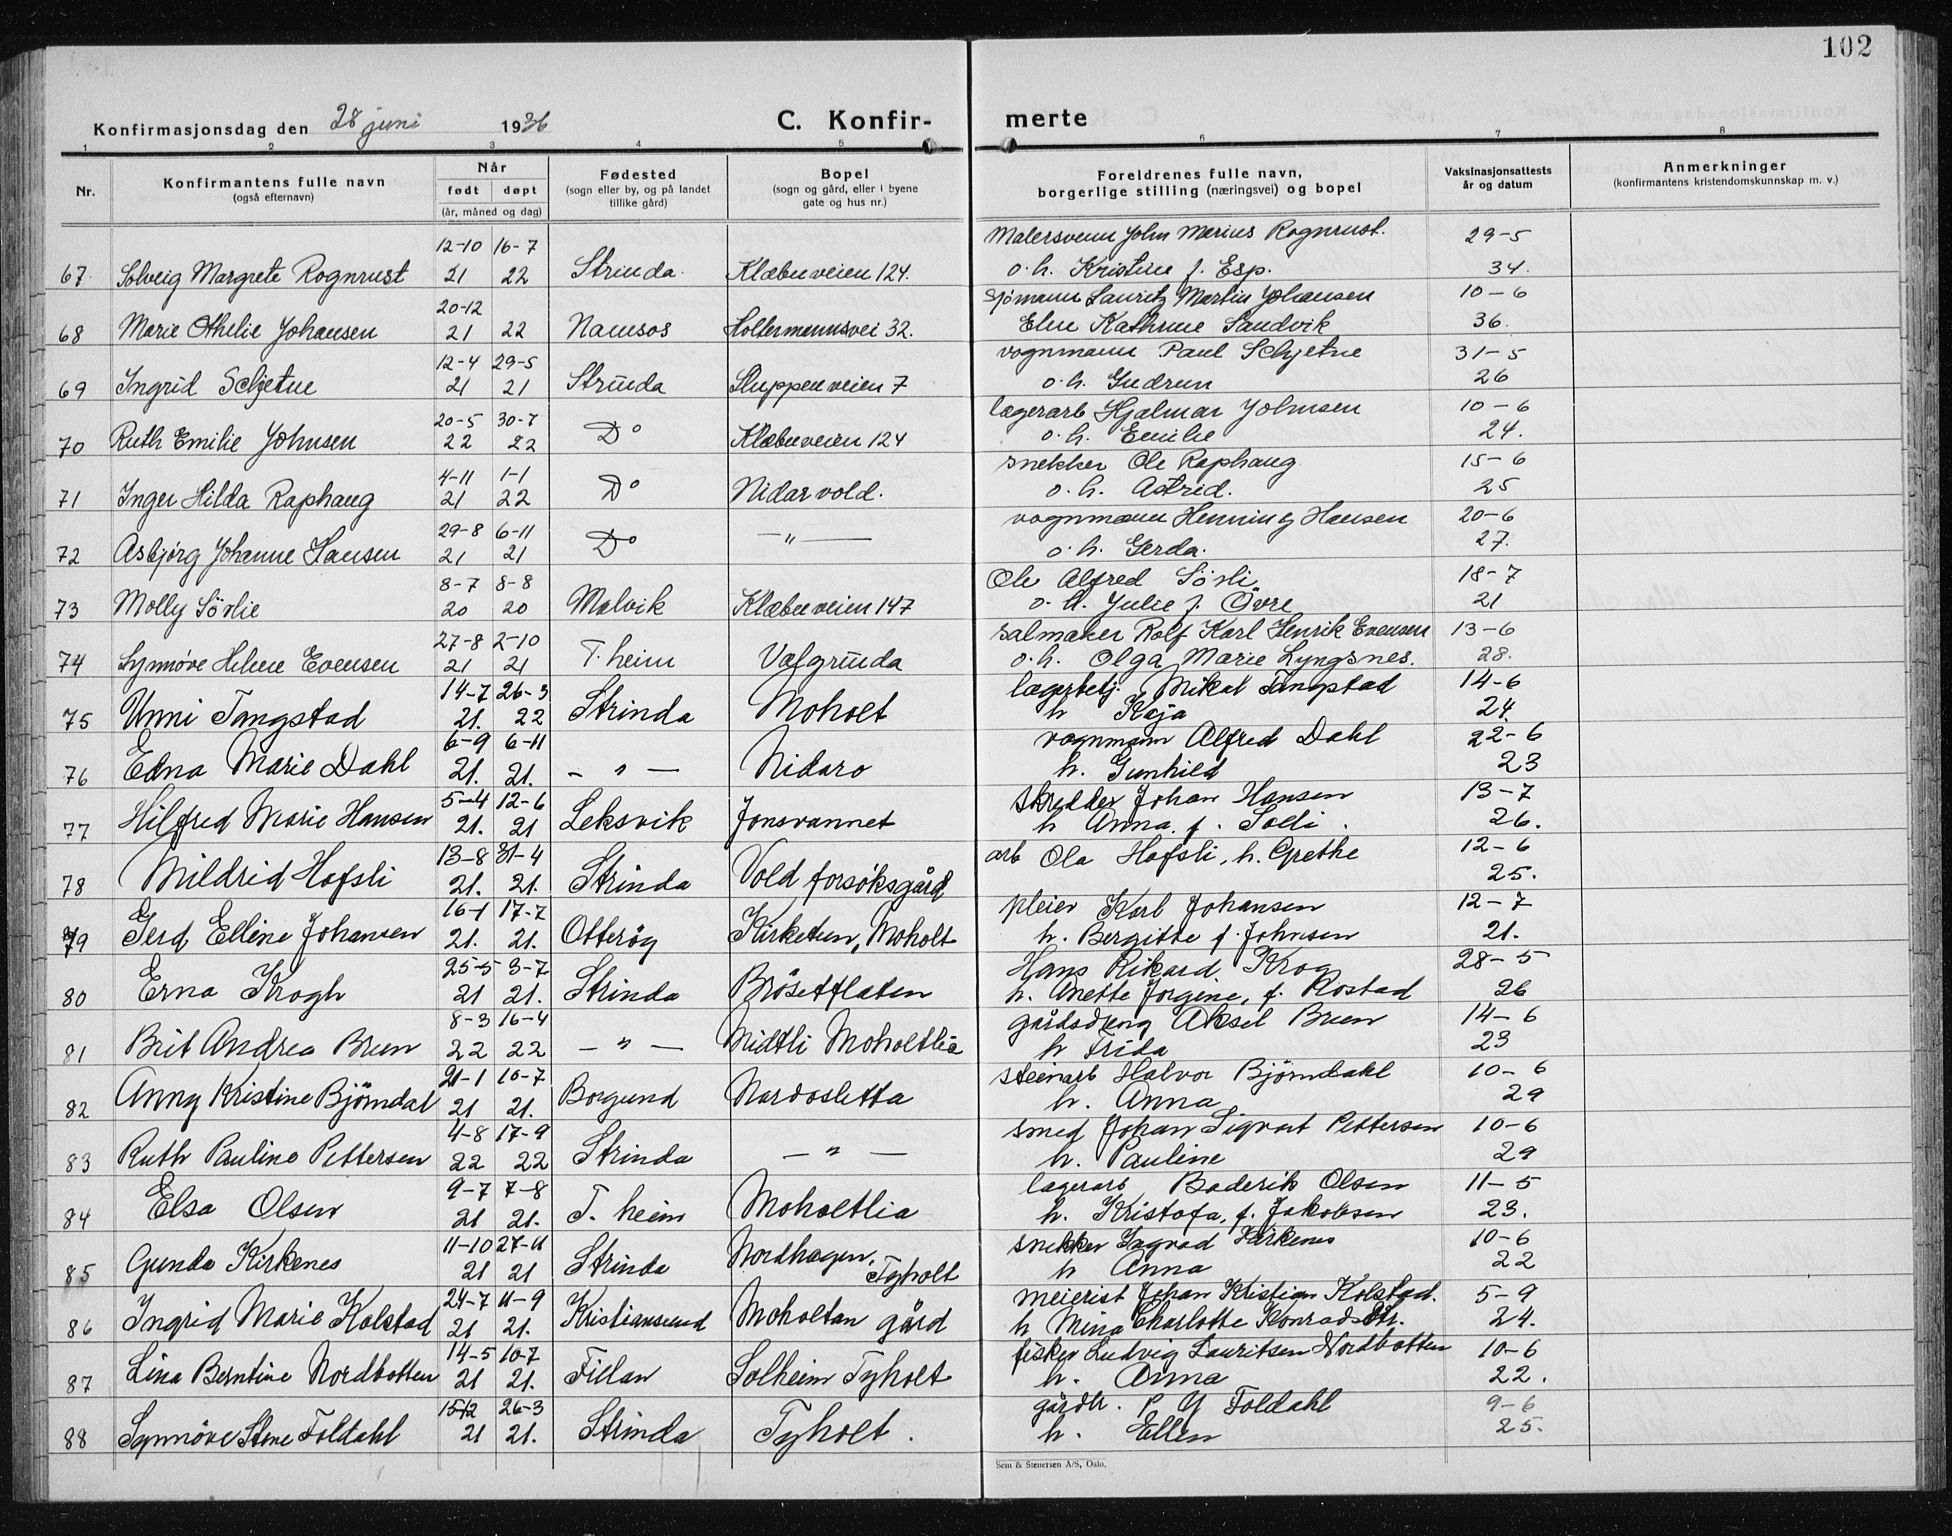 102
Konfirmasjonsdag den 28 juni 1936 C. Konfir- merte
1 2 3 4 5 6 7 8
Nr. Konfirmantens fulle navn (også efternavn) Når født døpt (år, måned og dag) Fødested (sogn eller by, og på landet tillike gård) Bopel (sogn og gård, eller i byene gate og hus nr.) Foreldrenes fulle navn, borgerlige stilling (næringsvei) og bopel Vaksinasjonsattests år og datum Anmerkninger (konfirmantens kristendomskunnskap m. v.)
12-10 16-7 Malersvenn John Marius Rognrust. 29-5
67. Solveig Margrete Rognrust 21 22 Strinda. Klæbuveien 124. o.h. Kristine f. Esp. 34.
20-12 sjømann Lauritz Martin Johansen 10-6
68 Marie Othelie Johansen 21 22 Namsos Holtermannsvei 32. Eline Kathrine Sandvik 36.
12-4 29-5 vognmann Paul Schjetne 31-5
69 Ingrid Schjetne 21 21 Strinda Sluppenveien 7 o.h. Gudrun 26
20-5 30-7 lagerarb Hjalmar Johnsen 10-6
70 Ruth Emilie Johnsen 22 22 Do Klæbuveien 124 o.h. Emilie 24.
4-11 1-1 snekker Ole Raphaug 15-6
71 Inger Hilda Raphaug 21 22 Do Nidarvold. o.h. Astrid. 25
29-8 6-11 vognmann Henning Hansen 20-6
72 Asbjørg Johanne Hansen 21 21 Do —"— o.h. Gerda. 27.
8-7 8-8 Ole Alfred Sörli 18-7
73 Molly Sörlie 20 20 Malvik Klæbuveien 147 o.h. Julie f. Övre 21
27-8 2-10 salmaker Rolf Karl Henrik Evensen 13-6
74 Synnøve Helene Evensen 21 21 T.heim Valgrinda o.h. Olga Marie Lyngsnes. 28.
14-7 26-3 lagerbetj. Mikal Tangstad 14-6
75 Unni Tangstad 21. 22 Strinda Moholt h Kaja 24.
6-9 6-11 vognmann Alfred Dahl 22-6
76 Edna Marie Dahl 21. 21. —"— Nidaro h. Gunhild 23
5-4 12-6 skredder Johan Hansen 13-7
77 Hilfred Marie Hansen 21. 21 Leksvik Jonsvannet h Anna f. Solli. 26.
13-8 31-4 arb Ola Hofsli, h. Grethe 12-6
78 Mildrid Hofsli 21. 21. Strinda Vold forsöksgård 25.
16-1 17-7 pleier Karl Johansen 12-7
79 Gerd Elline Johansen 21. 21. Otteröy Kirketun, Moholt h. Bergitte f. Johnsen 21.
25-5 3-7 Hans Rikard Krog 28-5
80 Erna Krogh 21 21. Strinda Brösetflaten h. Anette Jorgine, f. Rostad 26
8-3 16-4 gårdsdreng Aksel Bruen 14-6
81 Brit Andrea Bruen 22 22 —"— Midtli Moholtlia h Frida 23
21-1 10-7 steinarb Halvor Björndahl 10-6
82 Anny Kristine Björndal 21 21. Borgund Nardosletta h. Anna 29
4-8 17-9 smed Johan Sigvart Pettersen 10-6
83 Ruth Pauline Pettersen 22 22 Strinda —"— h. Pauline 29
9-7 7-8 lagerarb Baderik Olsen 11-5
84 Elsa Olsen 21 21. T. heim Moholtlia h. Kristofa, f. Jakobsen 23.
11-10 27-11 Nordhagen, snekker Ingvad Kirkenes 10-6
85 Gunda Kirkenes 21 21 Strinda Tyholt h Anna 22
24-7 11-9 meierist Johan Kristian Kolstad. 5-9
86 Ingrid Marie Kolstad 21 21. Kristiansund Moholtan gård h Mina Charlotte Konradsdtr. 24.
14-5 10-7 fisker Ludvig Lauritsen Nordbotten 10-6
87 Lina Berntine Nordbotten 21 21. Fillan Solheim Tyholt h. Anna 22.
15-12 26-3 gårdbr. P Y Foldahl 9-6
88 Synnöve Stene Foldahl 21 21. Strinda Tyholt. h. Ellen 25.
Sem & Stenersen A/S, Oslo.